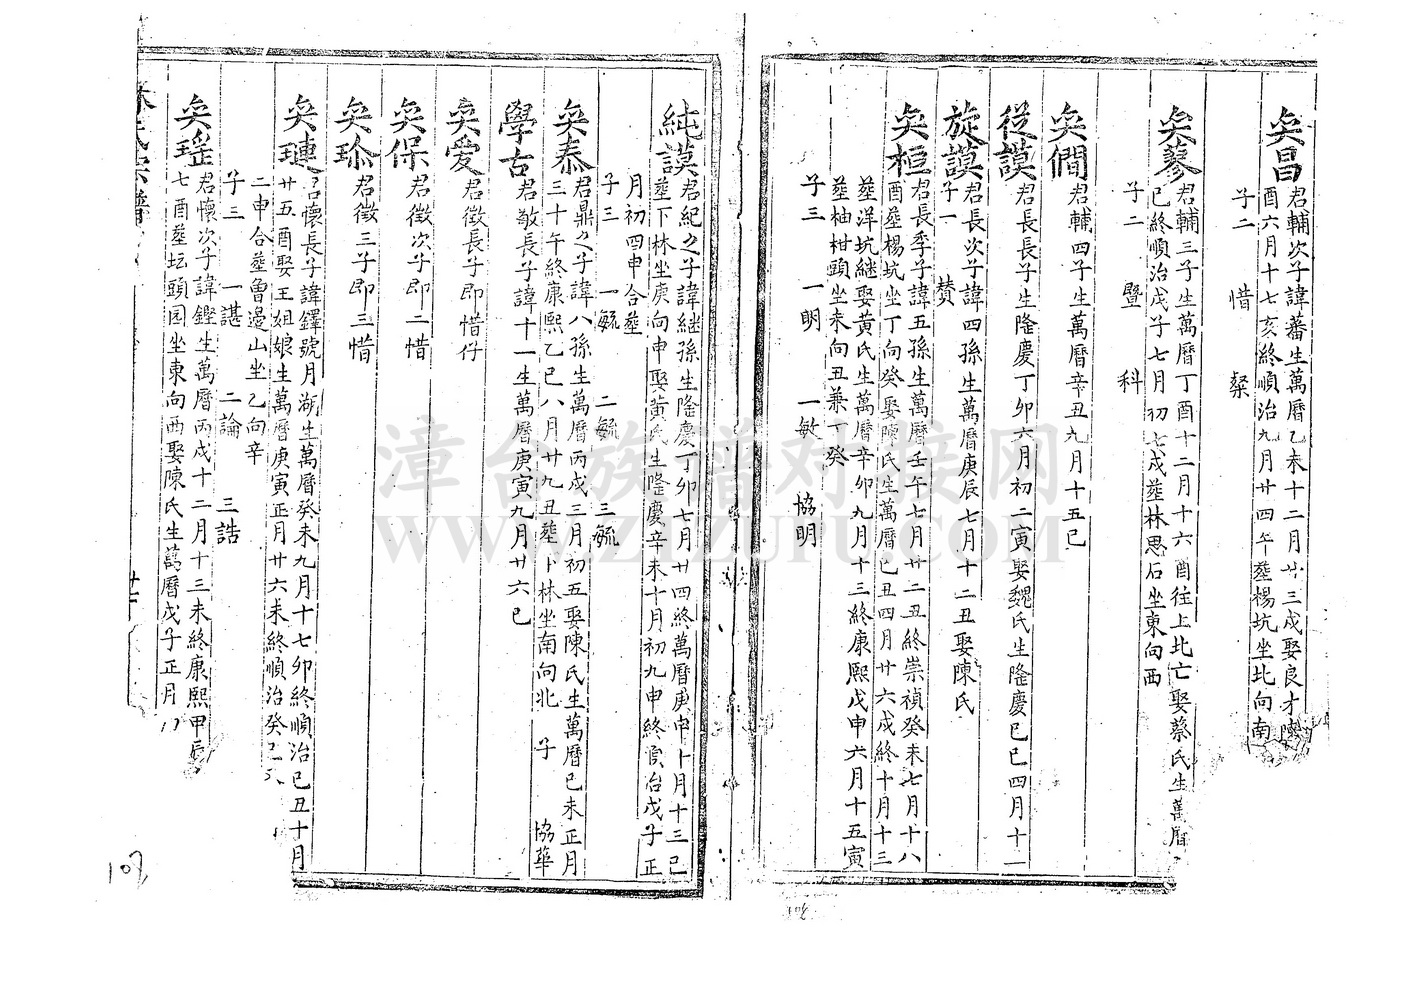 奂昌
君輔次子諱蕃生萬曆乙未十二月廿三戌娶良才
酉六月十七亥終順治九月廿四午塟楊坑坐北向南
子二 惜 粲
奂蓼
君輔三子生萬曆丁酉十二月十六酉往上北亡娶蔡氏生萬曆
已終順治戊子七月初七戌塟林思石坐東向西
子二 暨 科
奂僩
君輔四子生萬曆辛丑九月十五巳
從謨
君長長子生隆慶丁卯六月初二寅娶魏氏生隆慶己巳四月十一
旋謨
君長次子諱四孫生萬曆庚辰七月十二丑娶陳氏
子一 賛
奂桓
君長季子諱五孫生萬曆壬午七月廿二丑終崇禎癸未七月十八
酉塟楊坑坐丁向癸娶陳氏生萬曆己丑四月廿六戌終十月十三
塟洋坑継娶黄氏生萬曆辛卯九月十三終康熙戊申六月十五寅
塟柚柑頭坐未向丑兼丁癸
子三 一明 一敏 協明
純謨
君紀之子諱継孫生隆慶丁卯七月廿四終萬曆庚申十月十三巳
塟下林坐庚向申娶黄氏生隆慶辛未十月初九申終順治戊子正
月初四申合塟
子三 一毓 二毓 三毓
奂泰
君鼎之子諱八孫生萬曆丙戌三月初五娶陳氏生萬曆己未正月
三十午終康熙乙巳八月廿九丑塟卜林坐南向北 子 協華
學古
君敬長子諱十一生萬曆庚寅九月廿六巳
奂愛
君徵長子即惜仔
奂保
君徵次子即二惜
奂珎
君徵三子即三惜
奂璉
君懷長子諱鐸號月湖生萬曆癸未九月十七卯終順治己丑十月
廿五酉娶王姐娘生萬曆庚寅正月廿六未終順治癸巳二
二申合塟魯邉山坐乙向辛
子三 一諶 二論 三誥
奂瑶
君懷次子諱鏗生萬曆丙戌十二月十三未終康熙甲辰
七酉塟坛頭园坐東向西娶陳氏生萬曆戊子正月八
林氏宗譜
107
漳台族谱对接网
WWW.ZTZUPU.COM